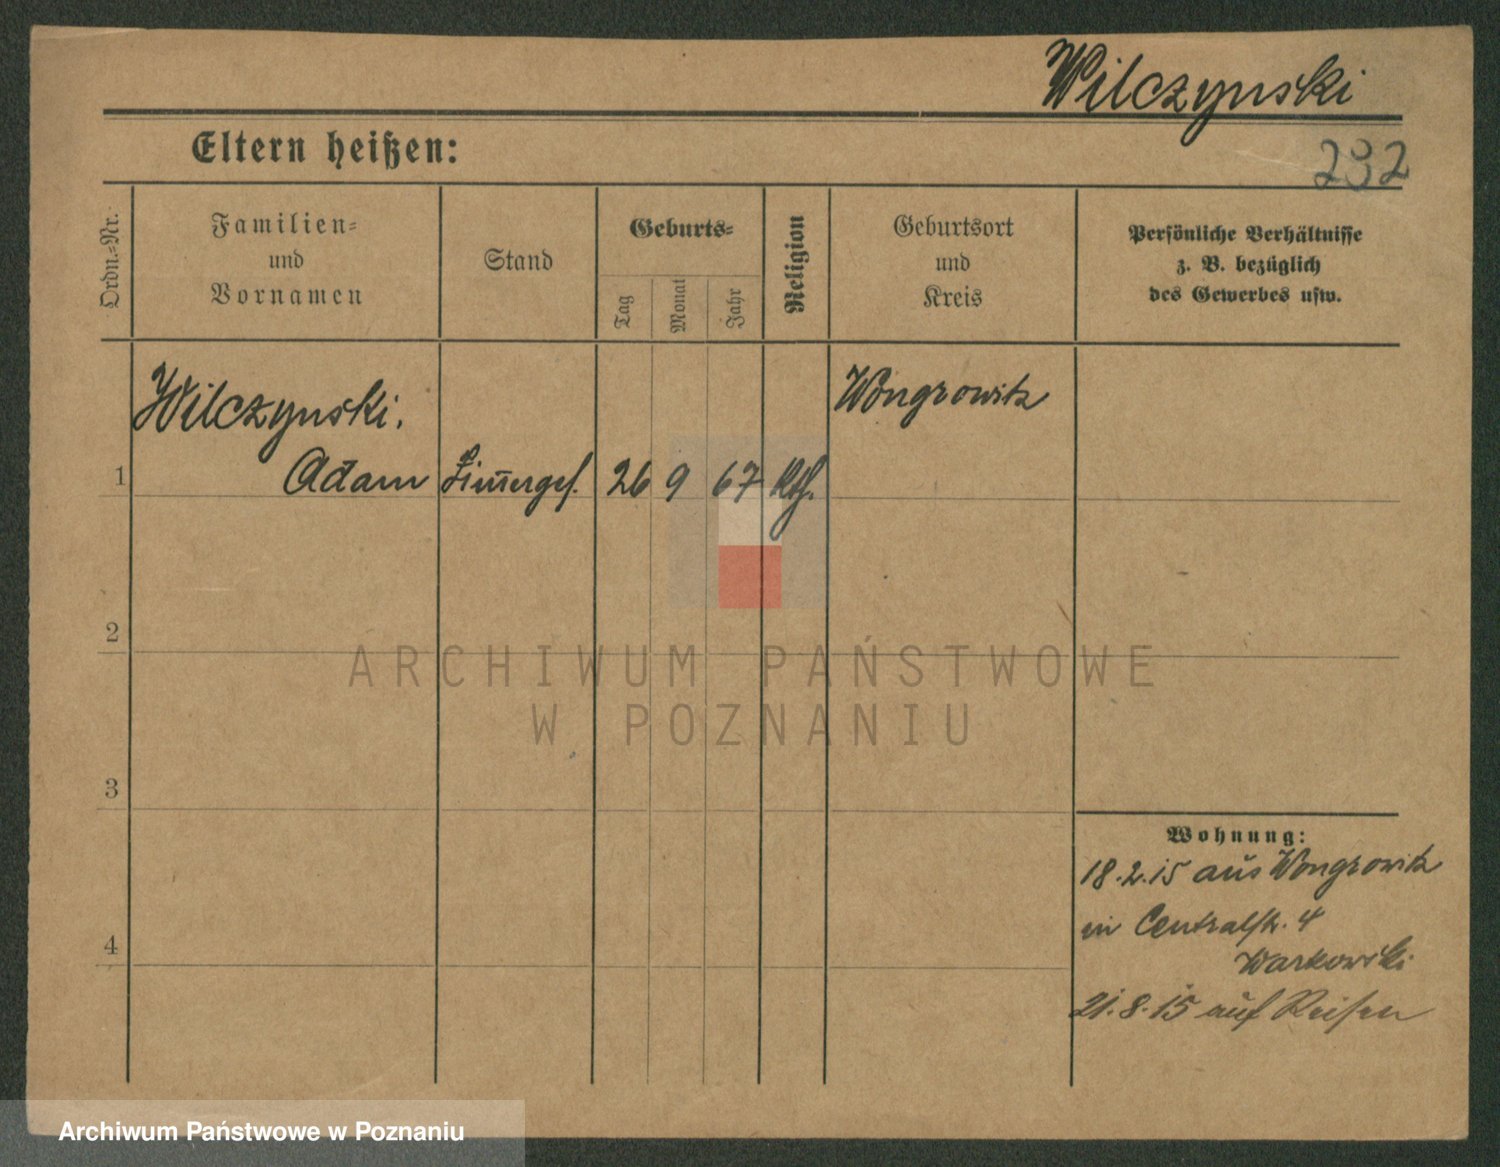 Wilczynski
Eltern heißen:
232
Ordn.-Nr.
Familien-
und
Vornamen
Stand
Geburts-
Tag
Monat
Jahr
Religion
Geburtsort
und
Kreis
Persönliche Verhältnisse
z. B. bezüglich
des Gewerbes usw.
Wilczynski,
Wongrowitz
1 Adam Zim̄erges. 26 9 67 Kth.
2
ARCHIWUM PAŃSTWOWE
W POZNANIU
3
Wohnung:
18.2.15 aus Wongrowitz
in Centralstr. 4
4
Warkowski
21.8.15 auf Reisen
Archiwum Państwowe w Poznaniu